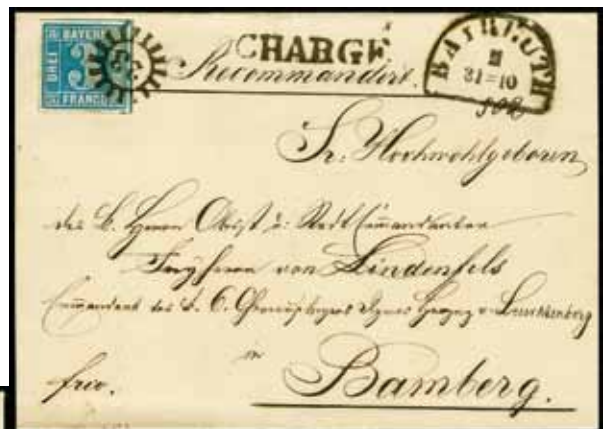 BAYERN
DREI
3
FRANCO
CHARGÉ
Recommandirt.
BAIREUTH
III
31=10
Sr. Hochwohlgeboren
des k. Herrn Oberst u: Stadt Commandanten
Freyherrn von Lindenfels
Commandant des k. 6. Chevauxlegers Regmes Herzog v. Leuchtenberg
in
frco.
Bamberg.